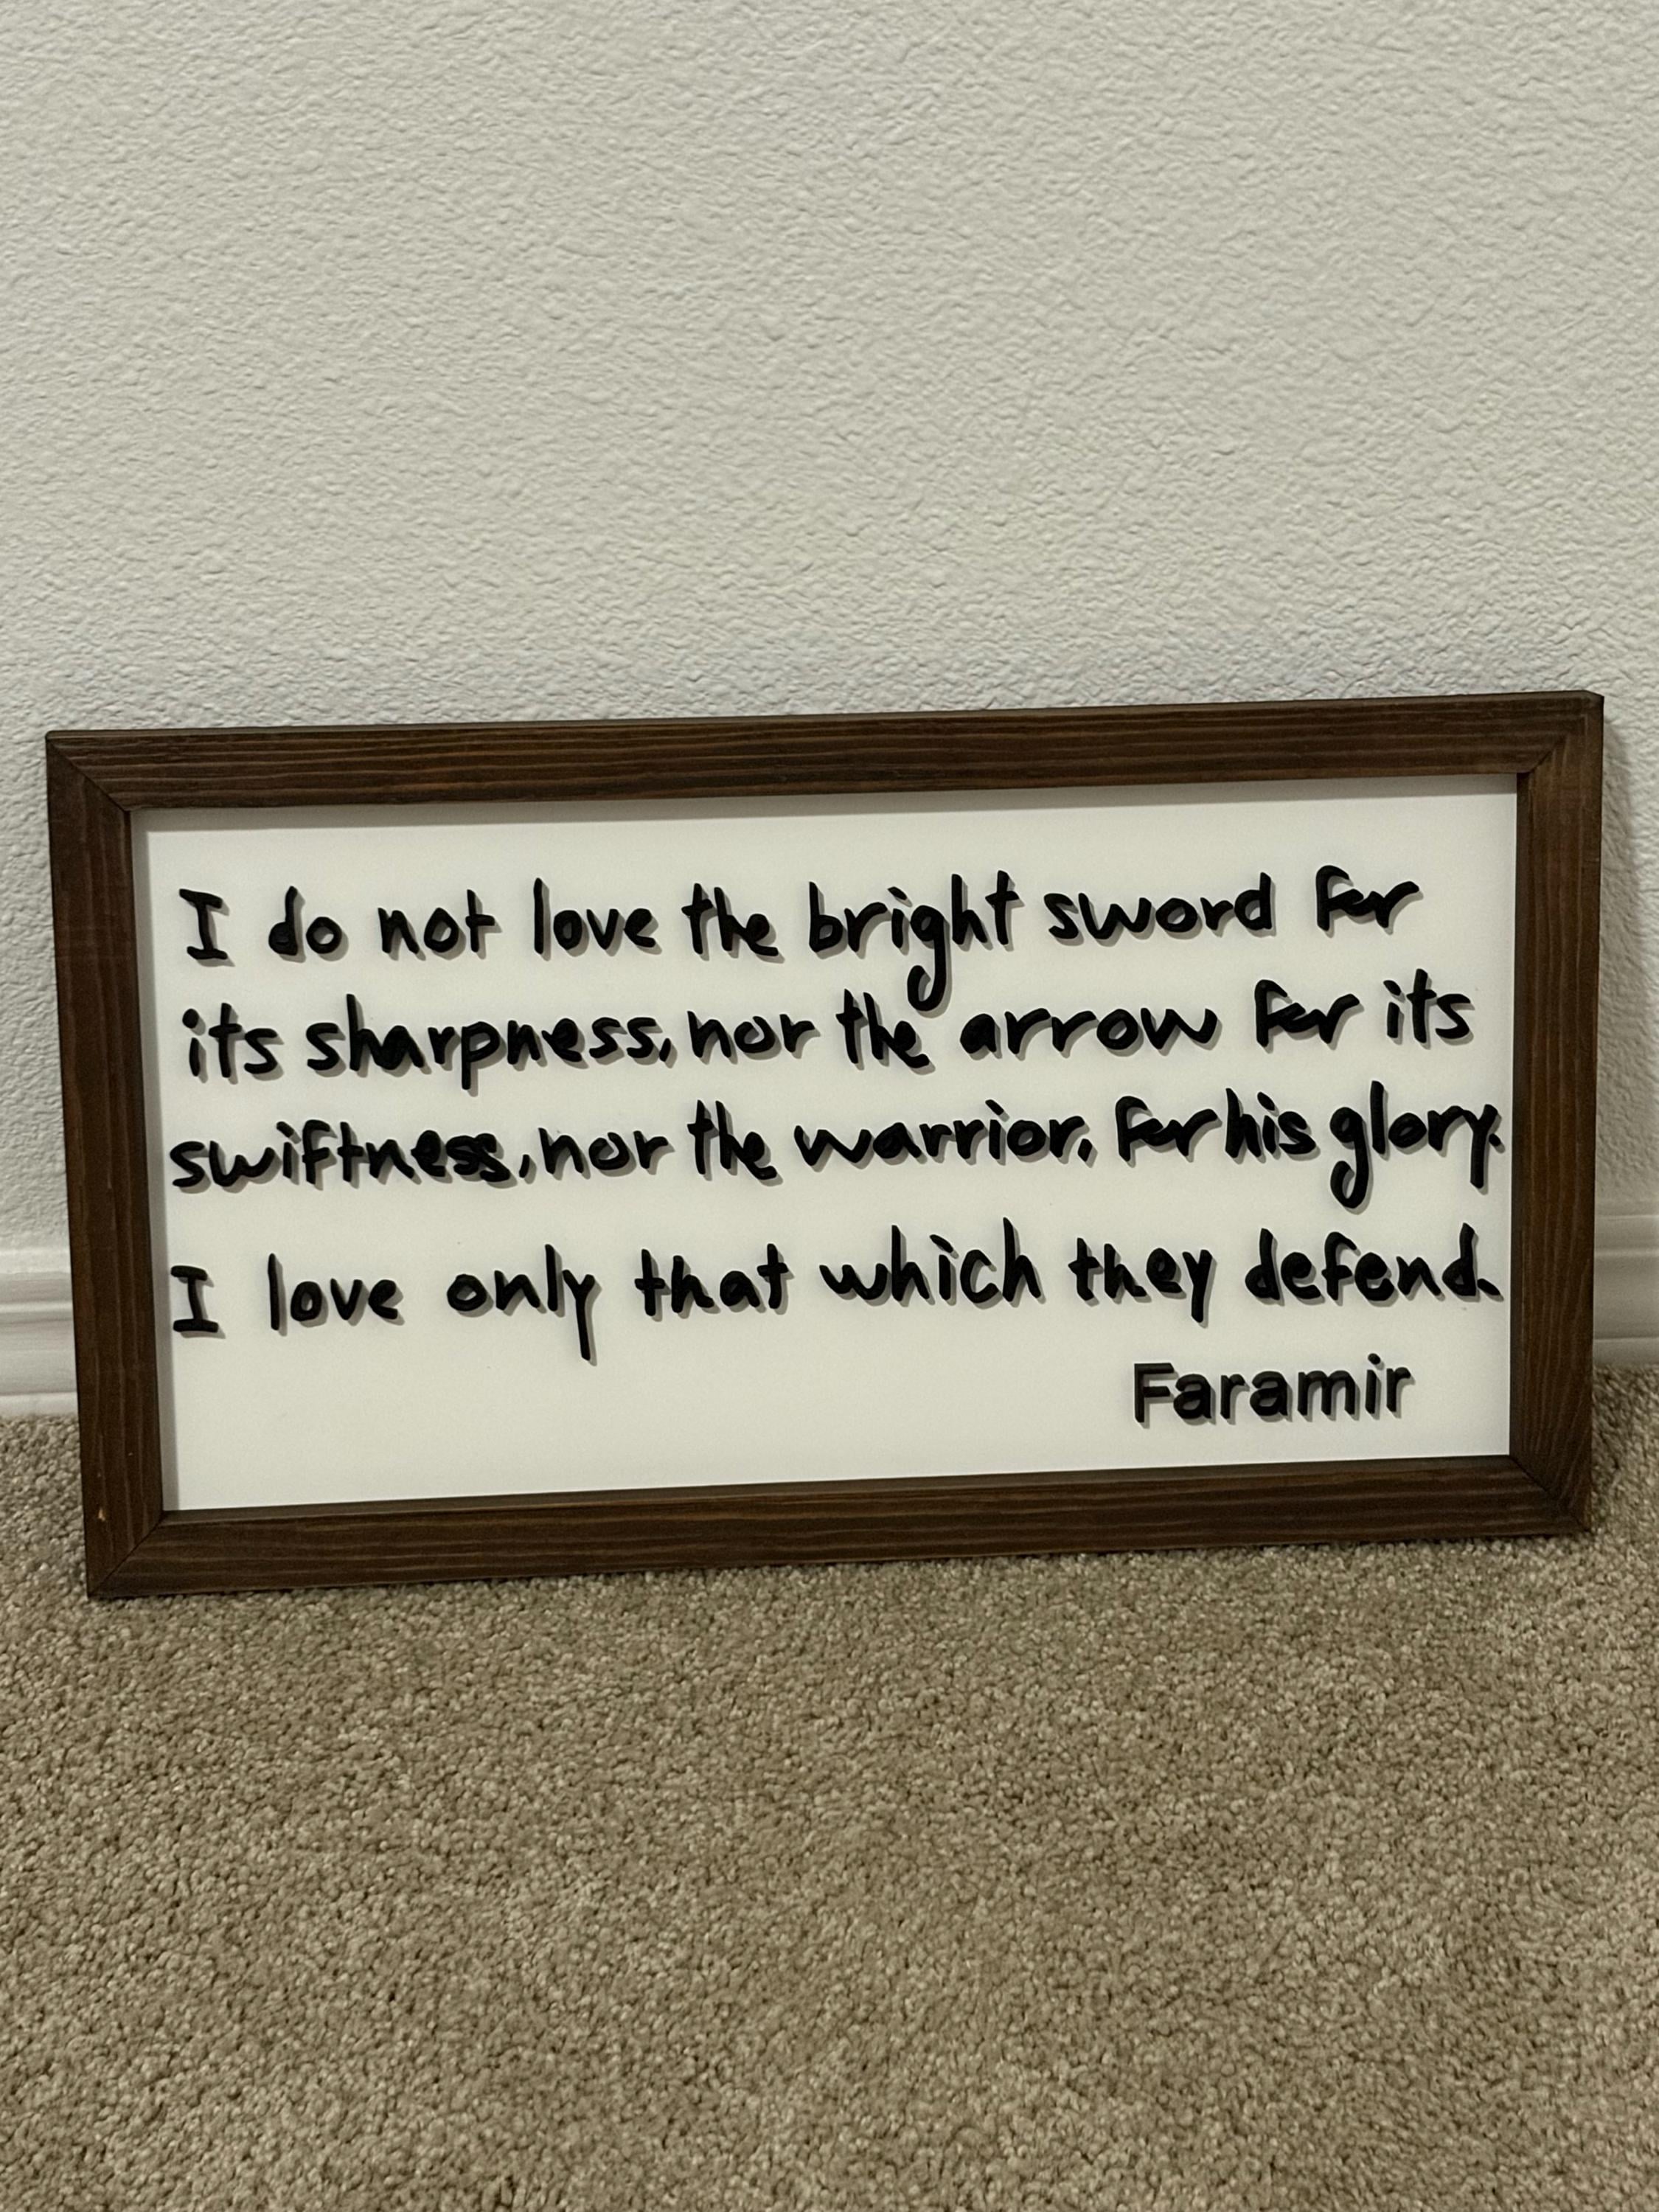 I do not love the bright sword for
its sharpness, nor the arrow for its
swiftness, nor the warrior, for his glory.
I love only that which they defend.
Faramir